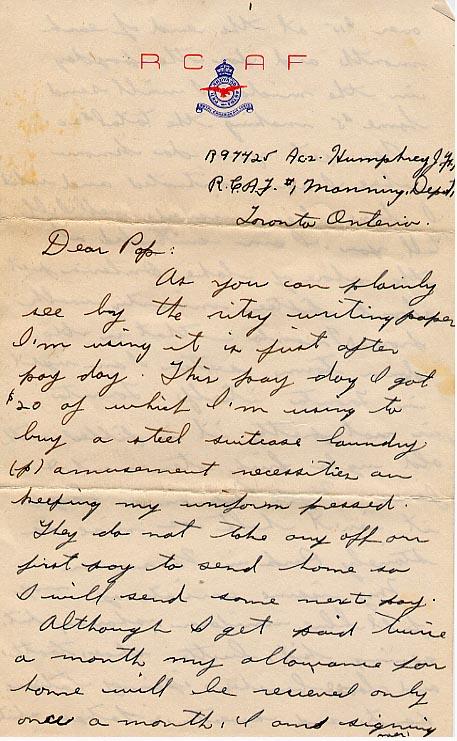 RCAF
R97425 Ac2. Humphrey J. H.
R.C.A.F. #1, Manning, Depot,
Toronto Onterio.
Dear Pop:
As you can plainly
see by the ritsy writing paper
I'm using it is just after
pay day. This pay day I got
$20 of which I'm using to
buy a steel suitcase laundry
(p) amusement necessities an
keeping my uniform pressed.
They do not take any off our
first pay to send home so
I will send some next pay.
Although I get paid twice
a month my allowance for
home will be recieved only
once a month. I am signing